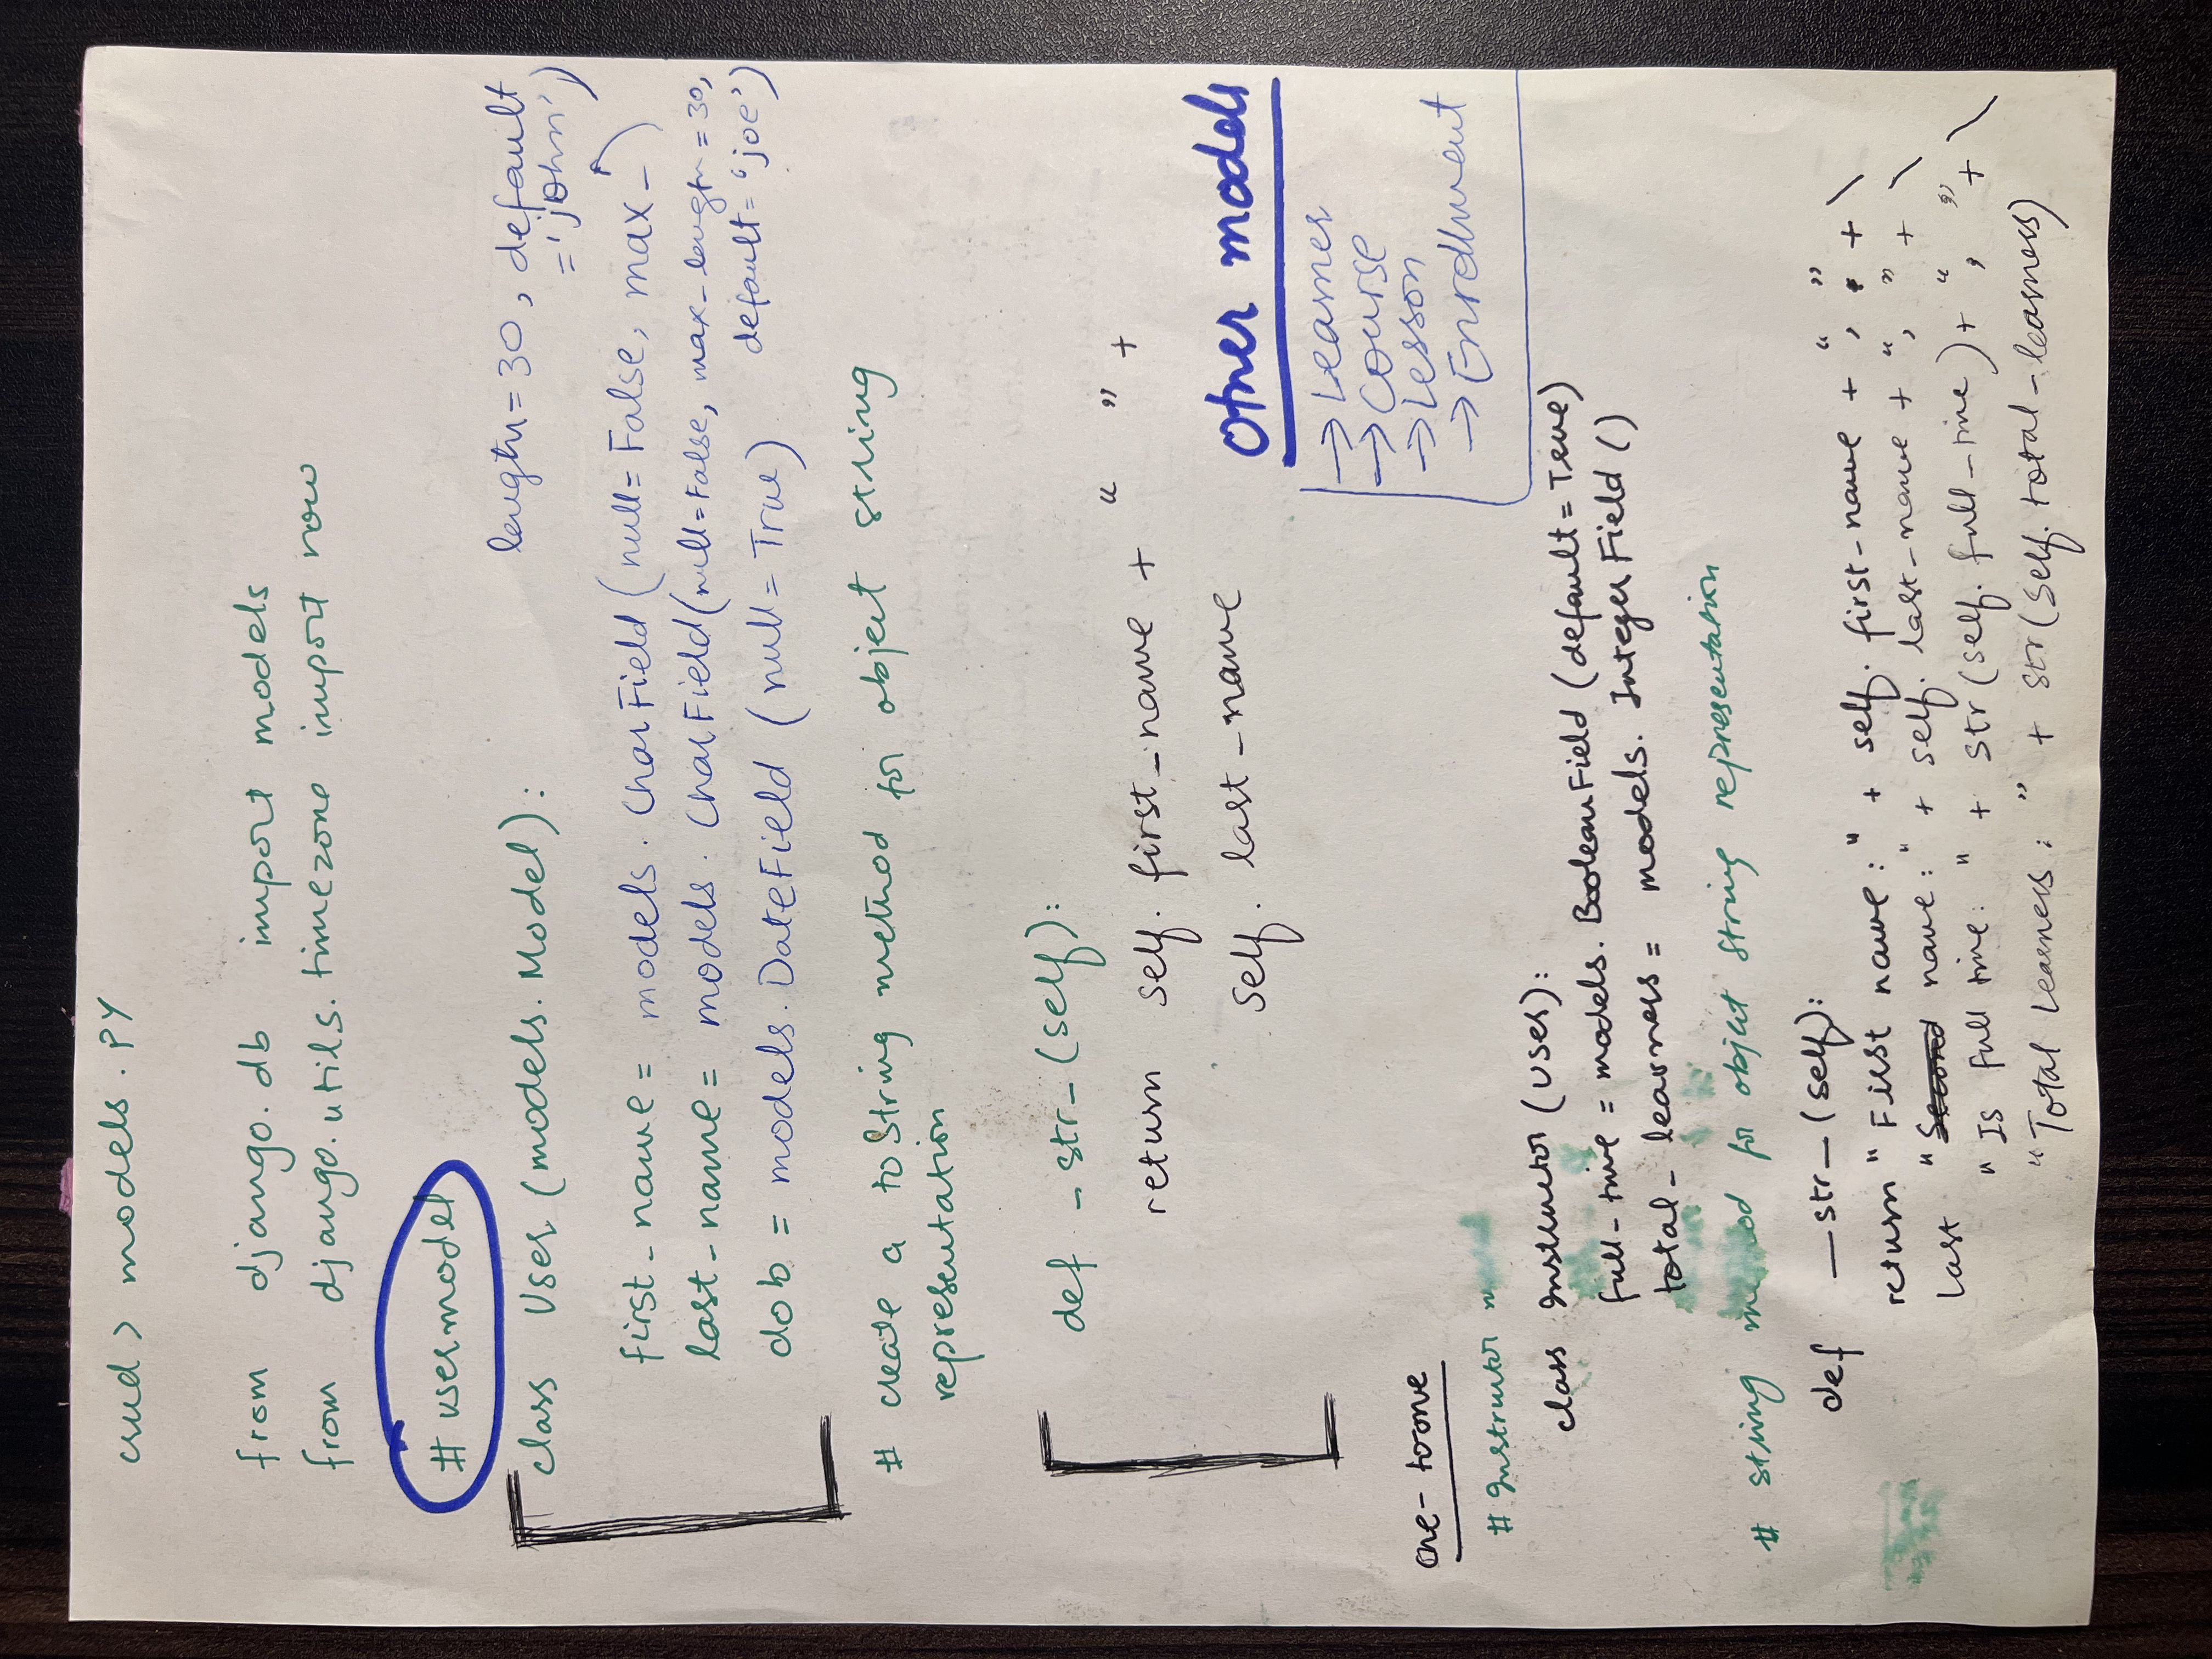 cmd > models.py
from django.db import models
from django.utils.timezone import now
# user model
class User (models.Model):
length=30, default
='john')
first_name = models.CharField (null=False, max_
last_name = models.CharField (null=False, max_length=30,
default='joe')
dob = models.DateField (null=True)
# create a toString method for object string
representation
def _str_(self):
return self.first_name + " " +
self.last_name
Other models
→ Learner
→ Course
→ Lesson
→ Enrollment
one-to one
# Instructor
class Instructor (User):
full-time = models.BooleanField (default=True)
total-learners = models.IntegerField ()
# string method for object string representation
def __str_(self):
return "First name:" + self.first-name + ", " + \
Last "name:" + self.last-name + ", " + \
"Is full time: " + str(self.full-time) + ", " + \
"Total Learners: " + str(self.total-learners)